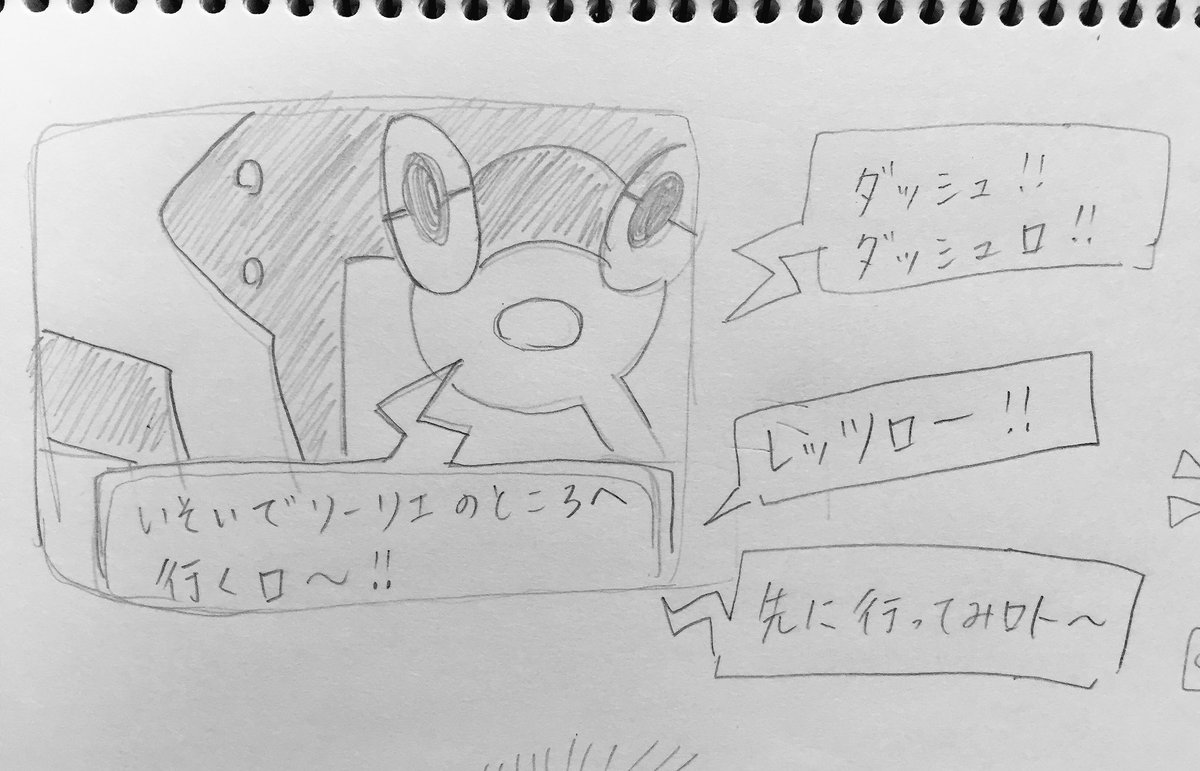 ダッシュ!!
ダッシュロ!!
レッツロー!!
いそいでリーリエのところへ
行くロ〜!!
先に行ってみロト〜